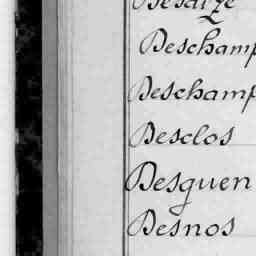 Deschamp
Deschamp
Desclos
Desguen
Desnos